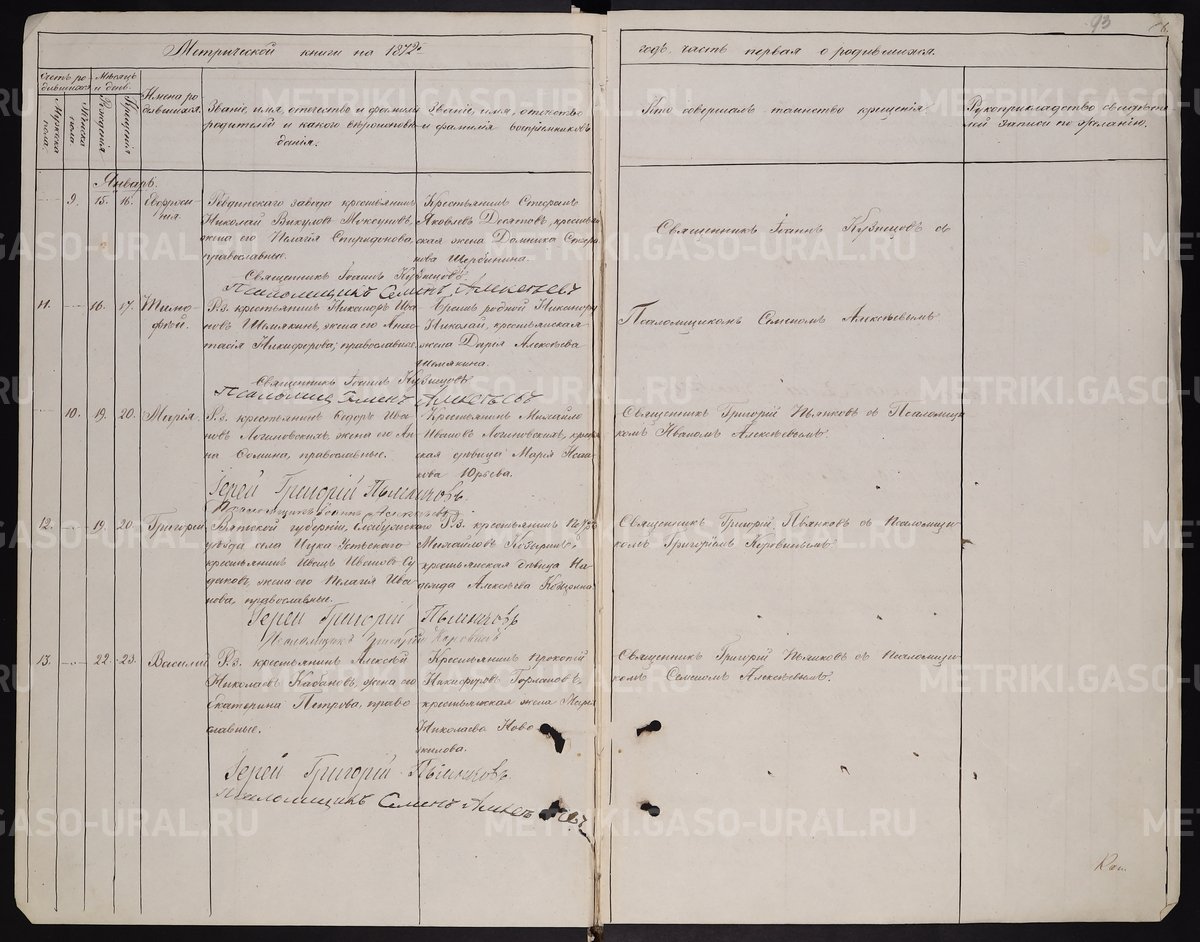 93
Метрической книги на 1872й
годъ, часть первая о родившихся.
Счетъ родившихся.
Мужеска пола.
Женска пола.
Мѣсяцъ и день.
Рожденія
Крещенія
Имена родившихся.
Званіе, имя, отчество и фамилія
родителей и какого вѣроисповѣ-
данія.
Званіе, имя, отчество
и фамилія воспріемниковъ
Кто совершалъ таинство крещенія.
Рукоприкладство свидѣте-
лей записи по желанію.
Январь.
9. 15. 16. Евфроси-
нія.
Ревдинскаго завода крестьянинъ
Николай Викуловъ
жена его Пелагія Спиридонова,
православные.
Крестьянинъ Стефанъ
Яковлевъ Десятовъ, крестьян-
ская жена Домника Стефа-
нова Щербинина.
Священникъ Іоаннъ Кузнецовъ съ
Священникъ Іоаннъ Кузнецовъ
Псаломщикъ Семенъ Алексѣевъ
Псаломщикомъ Семеномъ Алексѣевымъ.
11. 16. 17. Тимо-
фей.
Р. з. крестьянинъ Никаноръ Ива-
новъ Шемякинъ, жена его Анас-
тасія Никифорова, православные.
Братъ родной Никанору
Николай, крестьянская
жена Дарья Алексѣева
Шемякина.
Священникъ Іоаннъ Кузнецовъ
Псаломщ Семенъ Алексѣевъ
10. 19. 20. Марія.
Р. з. крестьянинъ Ива-
новъ Логиновскихъ, жена его Ан-
на Фомина, православные.
Крестьянинъ Михайло
Ивановъ Логиновскихъ, крестьян-
ская дѣвица Марія Исаа-
кова Юрьева.
Священникъ Григорій Пьянковъ съ Псаломщи-
комъ Иваномъ Алексѣевымъ.
Іерей Григорій Пьянковъ.
12. 19. 20. Григорій.
Вятской губерніи, Елабужскаго
уѣзда села Ицка Устьскаго
крестьянинъ Ивановъ Су-
даковъ, жена его Пелагія Ива-
нова, православные.
Р. з. крестьянинъ
Михайловъ Козыринъ,
крестьянская дѣвица На-
дежда Алексѣева
Священникъ Григорій Пьянковъ съ Псаломщи-
комъ Григоріемъ Коровинымъ.
Іерей Григорій Пьянковъ
Псаломщикъ Григорій Коровинъ
13. 22. 23. Василій
Р. з. крестьянинъ Алексѣй
Николаевъ Кабановъ, жена его
Екатерина Петрова, право-
славные.
Крестьянинъ Прокопій
Никифоровъ
крестьянская жена
Николаева Ново-
жилова.
Священникъ Григорій Пьянковъ съ Псаломщи-
комъ Семеномъ Алексѣевымъ.
Іерей Григорій Пьянковъ
Псаломщикъ Семенъ Алексѣевъ
METRIKI.GASO-URAL.RU